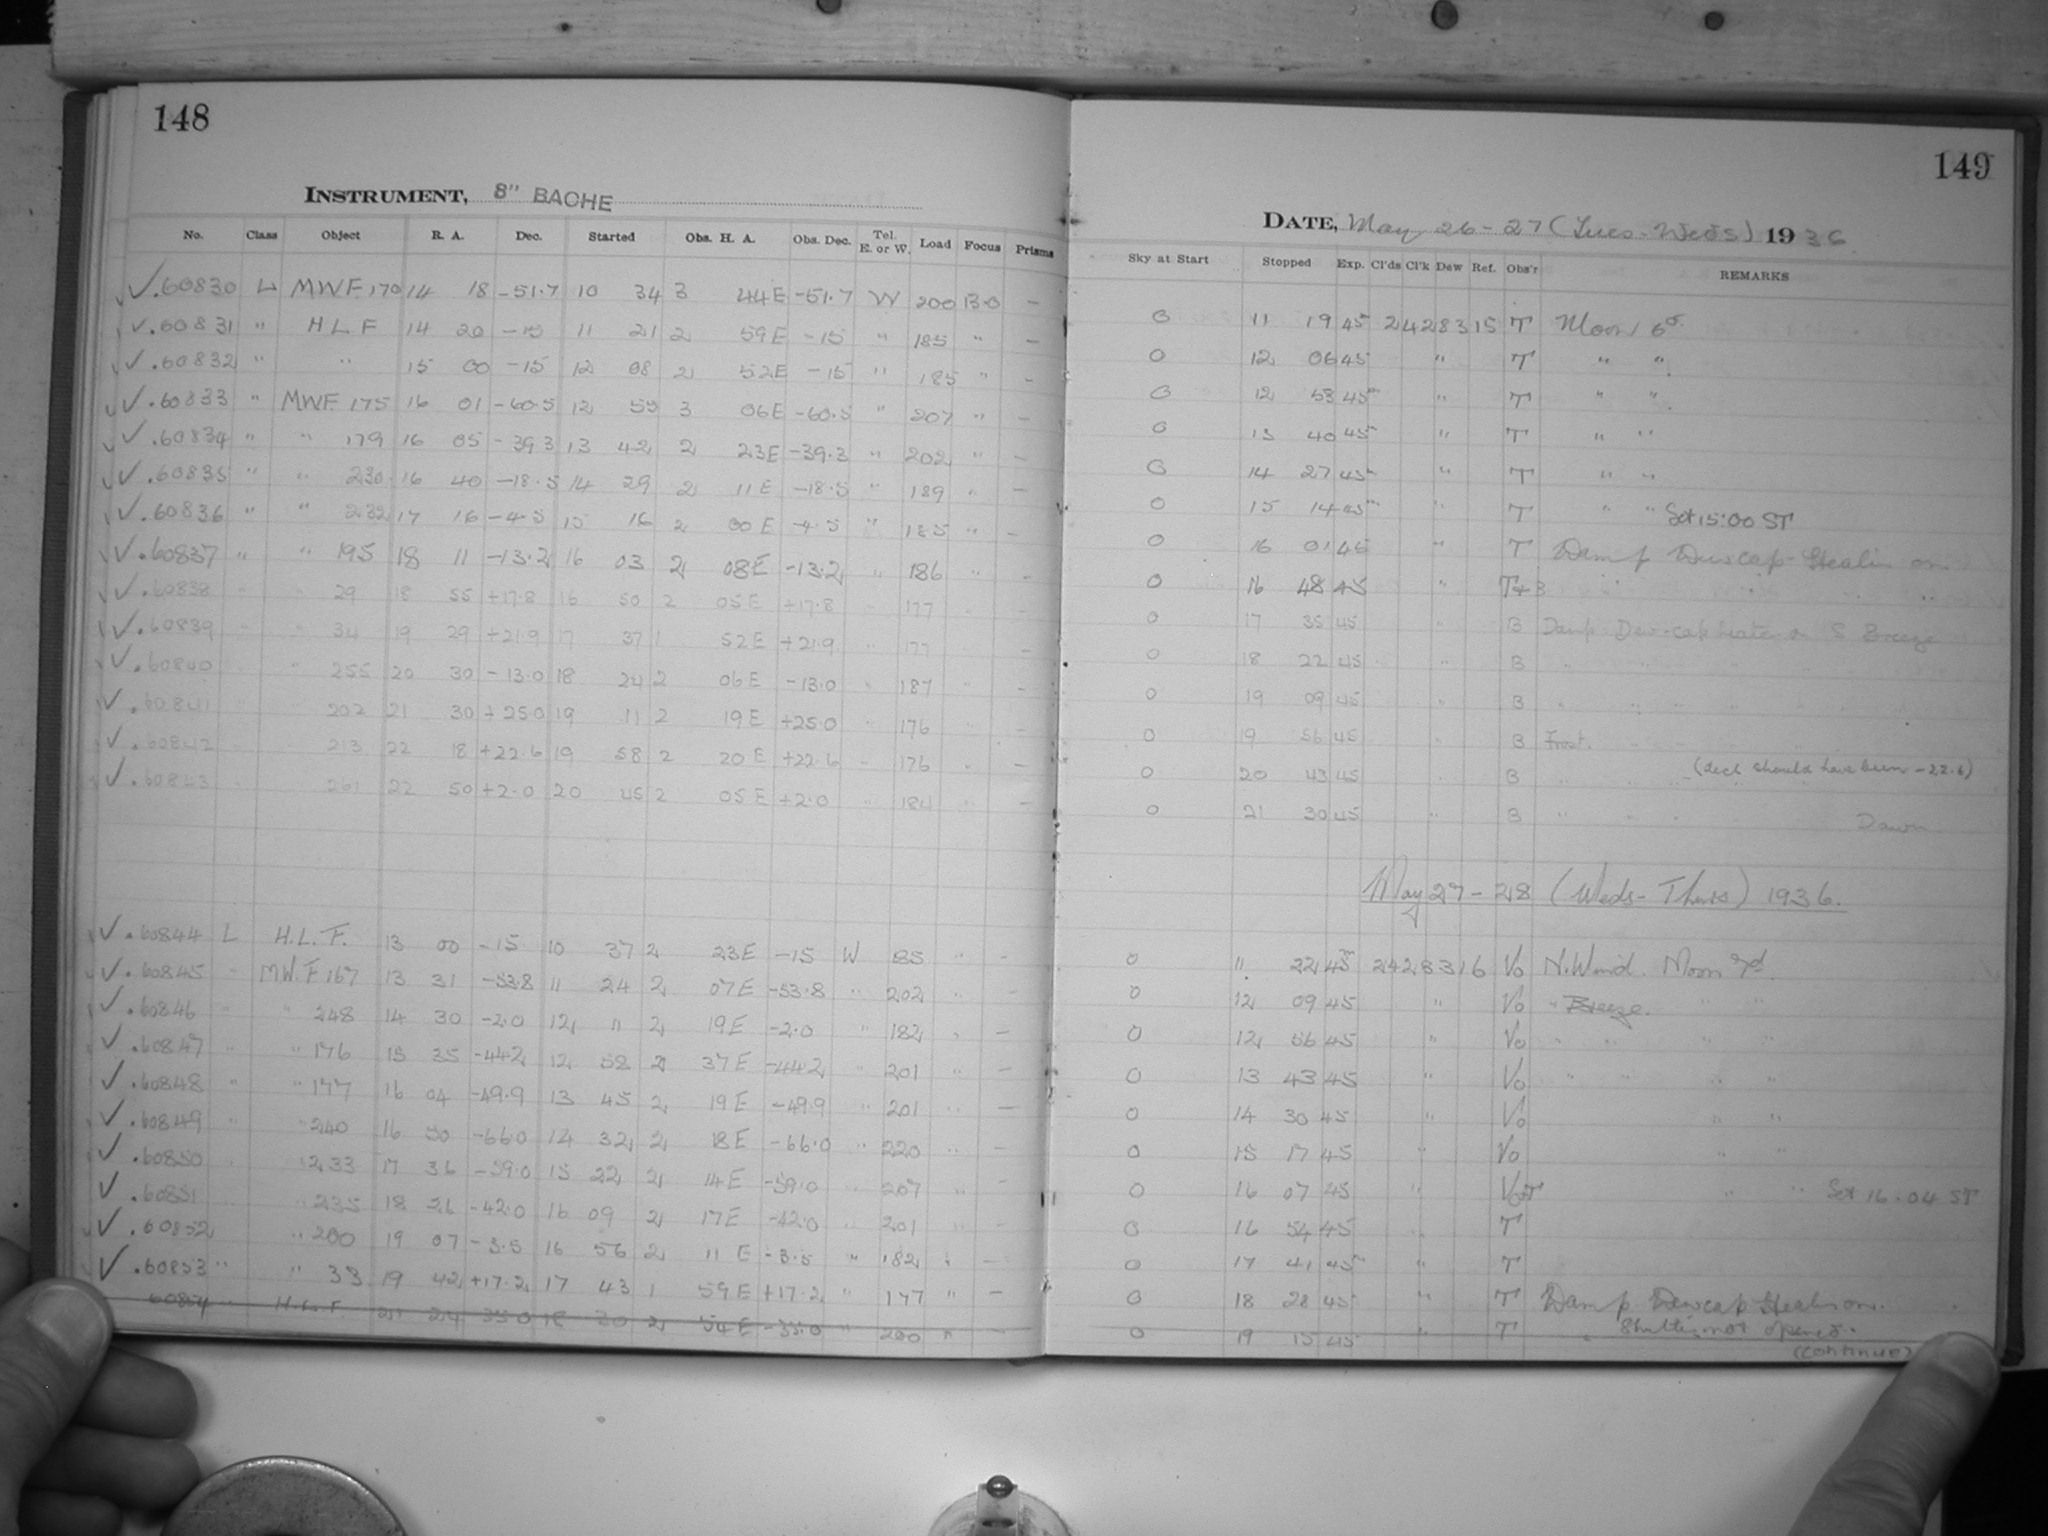 148
INSTRUMENT, 8" BACHE
No. Class Object R. A. Dec. Started Obs. H. A. Obs. Dec. Tel. E. or W. Load Focus Prisms
✓.60830 L MWF 170 14 18 -51.7 10 34 3 44E -51.7 W 200 13.0 —
✓.60831 " HLF 14 20 -15 11 21 2 59E -15 " 185 " —
✓.60832 " " 15 00 -15 12 08 2 52E -15 " 185 " —
✓.60833 " MWF 175 16 01 -60.5 12 55 3 06E -60.5 " 207 " —
✓.60834 " " 179 16 05 -39.3 13 42 2 23E -39.3 " 202 " —
✓.60835 " " 230 16 40 -18.5 14 29 2 11E -18.5 " 189 " —
✓.60836 " " 232 17 16 -4.5 15 16 2 00E -4.5 " 185 " —
✓.60837 " " 195 18 11 -13.2 16 03 2 08E -13.2 " 186 " —
✓.60838 " " 29 18 55 +17.8 16 50 2 05E +17.8 " 177 " —
✓.60839 " " 34 19 29 +21.9 17 37 1 52E +21.9 " 177 " —
✓.60840 " " 255 20 30 -13.0 18 24 2 06E -13.0 " 187 " —
✓.60841 " " 202 21 30 +25.0 19 11 2 19E +25.0 " 176 " —
✓.60842 " " 213 22 18 +22.6 19 58 2 20E +22.6 " 176 " —
✓.60843 " " 261 22 50 +2.0 20 45 2 05E +2.0 " 184 " —
✓.60844 L H.L.F. 13 00 -15 10 37 2 23E -15 W 85 " —
✓.60845 " MW.F 167 13 31 -53.8 11 24 2 07E -53.8 " 202 " —
✓.60846 " " 248 14 30 -2.0 12 11 2 19E -2.0 " 182 " —
✓.60847 " " 176 15 35 -44.2 12 58 2 37E -44.2 " 201 " —
✓.60848 " " 177 16 04 -49.9 13 45 2 19E -49.9 " 201 " —
✓.60849 " " 240 16 50 -66.0 14 32 2 18E -66.0 " 220 " —
✓.60850 " " 233 17 36 -59.0 15 22 2 14E -59.0 " 207 " —
✓.60851 " " 235 18 26 -42.0 16 09 2 17E -42.0 " 201 " —
✓.60852 " " 200 19 07 -3.5 16 56 2 11E -3.5 " 182 " —
✓.60853 " " 33 19 42 +17.2 17 43 1 59E +17.2 " 177 " —
60854 " H.L.F. 21 24 -35.0 18 30 2 54E -35.0 " 200 " —
149
DATE, May 26-27 (Tues-Weds) 1936
Sky at Start Stopped Exp. Cl'ds Cl'k Dew Ref. Obs'r REMARKS
0 11 19 45 242 83 15 T Moon 6d.
0 12 06 45 " T " "
0 12 53 45 " T " "
0 13 40 45 " T " "
0 14 27 45 " T " "
0 15 14 45 " T " " Set 15:00 ST
0 16 01 45 " T Damp Dewcap-Heater on.
0 16 48 45 " T+B " " " "
0 17 35 45 " B Damp Dew-cap heater on S Breeze
0 18 22 45 " B " " " "
0 19 09 45 " B " " " "
0 19 56 45 " B Frost. " " "
0 20 43 45 " B " (decl should have been -22.6)
0 21 30 45 " B " " Dawn
May 27-28 (Weds-Thurs) 1936.
0 11 22 45 242 83 16 Vo N.Wind. Moon 7d
0 12 09 45 " Vo " Breeze. " "
0 12 56 45 " Vo " " " "
0 13 43 45 " Vo " " " "
0 14 30 45 " Vo " "
0 15 17 45 " Vo " "
0 16 07 45 " Vo+T " " Set 16.04 ST
0 16 54 45 " T
0 17 41 45 " T
0 18 28 45 " T Damp Dewcap Heater on.
0 19 15 45 " T " Shutter not opened.
(continue)